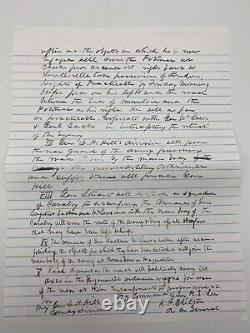 after on the objects in which he is now
engaged will cross the Potomac at
Cheeks ford ascend its right bank to
Lovettsville take possession of Loudoun
Heights if Practicable by Friday Morning
Keys ford on his left and the road
between the end of Mountain and the
Potomac on his right He will as far
as practicable cooperate with Gen McLaws &
Genl Jackson in intercepting the retreat
of the enemy
VII Gen D. H. Hill's division will form
the rear guard of the Army pursuing
the road taken by the main body
ordnance
and supply trains will precede Gen
Hill
VIII Gen Stuart will detach a squadron
of Cavalry to accompany the Commands of Gens
Longstreet Jackson and McLaws and with the main body of the
Cavalry will cover the route of the Army & bring up all stragglers
that may have been left behind
IX The commands of Gen Jackson McLaws & Walker after accomp
lishing the objects for which they have been detached will join the
main body of the army at Boonsboro or Hagerstown
X Each Regiment on the march will habitually carry its
axes in the Regimental ordnance wagons for use
of the men at their encampments to procure wood &c
By command of Gen. R. E. Lee
R. H. Chilton
A. A. General
For
Maj Gen D. H. Hill
Comdg Division